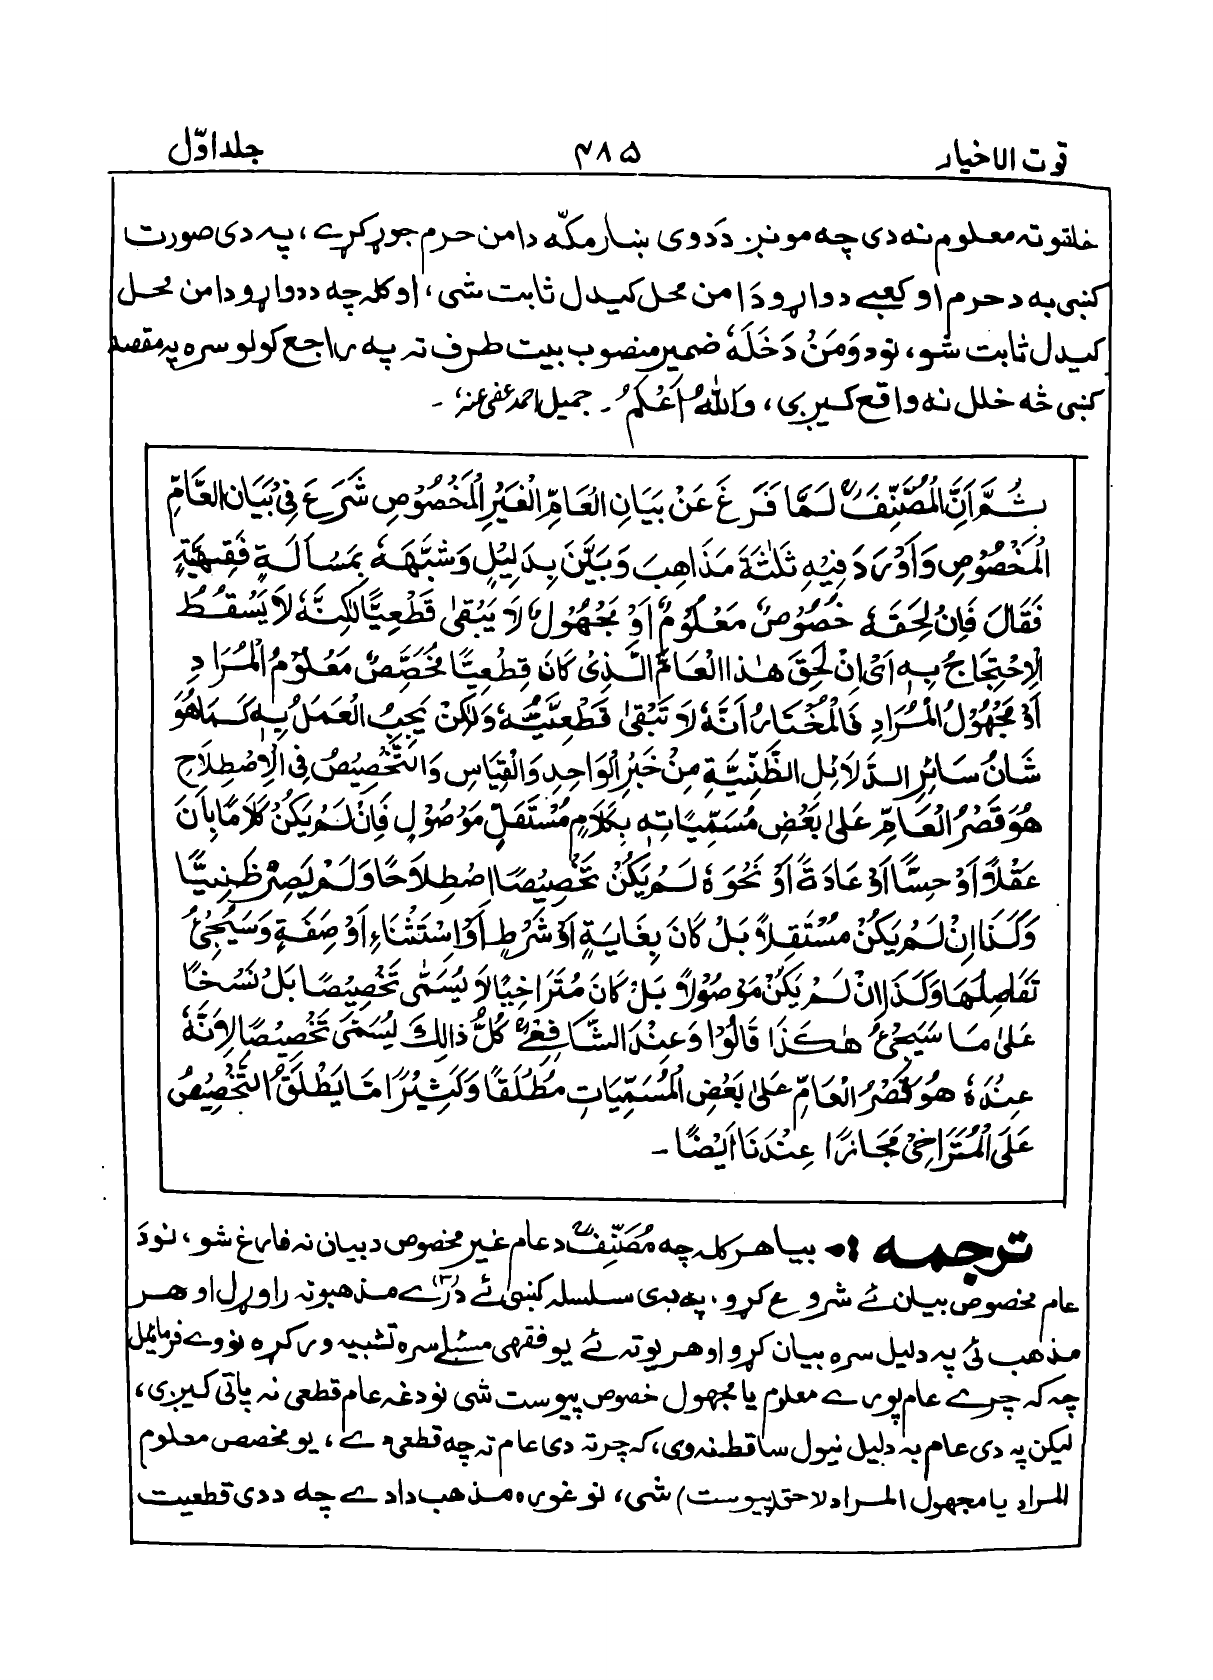 قوت الاخیار ۴۸۵ جلد اوّل
خلقو ته معلوم نه دی چه مونږ. دَ دوی ښار مکّه دامن حرم جوړ کړے، په دی صورت
کښی به د حرم او کعبے دواړو دَ امن محل کیدل ثابت شی، او کله چه د دواړو دامن محل
کیدل ثابت شو، نو د وَمَنْ دَخَلَهٗ ضمیر منصوب بیت طرف ته په راجع کولو سره په مقصد
کښی څه خلل نه واقع کیږی، وَاللهُ اَعْلَمُ۔ جمیل احمد عفی عنہ۔
ثُمَّ اَنَّ الْمُصَنِّفَؒ لَمَّا فَرَغَ عَنْ بَیَانِ الْعَامِّ الْغَیْرِ الْمَخْصُوْصِ شَرَعَ فِیْ بَیَانِ الْعَامِّ
الْمَخْصُوْصِ وَاَوْرَدَ فِیْهِ ثَلٰثَةَ مَذَاهِبَ وَبَیَّنَ بِدَلِیْلٍ وَشَبَّهَهٗ بِمَسْاَلَةٍ فَقِهِیَّةٍ
فَقَالَ فَاِنْ لَحِقَهٗ خُصُوْصٌ مَعْلُوْمٌ اَوْ مَجْهُوْلٌ لَا یَبْقٰی قَطْعِیًّا لٰکِنَّهٗ لَا یَسْقُطُ
الْاِحْتِجَاجُ بِهٖ اَیْ اِنْ لَحِقَ هٰذَا الْعَامَّ الَّذِیْ کَانَ قِطْعِیًّا مُخَصِّصٌ مَعْلُوْمُ الْمُرَادِ
اَوْ مَجْهُوْلُ الْمُرَادِ فَالْمُخْتَارُ اَنَّهٗ لَا تَبْقٰی قَطْعِیَّتُهٗ وَلٰکِنْ یَجِبُ الْعَمَلُ بِهٖ کَمَا هُوَ
شَانُ سَائِرِ الدَّلَائِلِ الظَّنِّیَّةِ مِنْ خَبَرِ الْوَاحِدِ وَالْقِیَاسِ وَالتَّخْصِیْصُ فِی الْاِصْطِلَاحِ
هُوَ قَصْرُ الْعَامِّ عَلٰی بَعْضِ مُسَمِّیَاتِهٖ بِکَلَامٍ مُسْتَقِلٍّ مَوْصُوْلٍ فَاِنْ لَمْ یَکُنْ کَلَامًا بِاَنَ
عَقْلًا اَوْ حِسًّا اَوْ عَادَةً اَوْ نَحْوَهٗ لَمْ یَکُنْ تَخْصِیْصًا اصْطِلَاحًا وَلَمْ یَصِرْ ظَنِیًّا
وَکَذَا اِنْ لَمْ یَکُنْ مُسْتَقِلًّا بَلْ کَانَ بِغَایَةٍ اَوْ شَرْطٍ اَوْ اِسْتِثْنَاءٍ اَوْ صِفَةٍ وَسَیَجِیْءُ
تَفَاصِلُهَا وَکَذَا اِنْ لَمْ یَکُنْ مَوْصُوْلًا بَلْ کَانَ مُتَرَاخِیًا لَا یُسَمّٰی تَخْصِیْصًا بَلْ نَسْخًا
عَلٰی مَا سَیَجِیْءُ هٰکَذَا قَالُوْا وَعِنْدَ الشَّافِعِیِّؒ کُلُّ ذَالِكَ یُسَمّٰی تَخْصِیْصًا لِاَنَّهٗ
عِنْدَهٗ هُوَ قَصْرُ الْعَامِّ عَلٰی بَعْضِ الْمُسَمِّیَاتِ مُطْلَقًا وَکَثِیْرًا مَّا یَطْلَقُ التَّخْصِیْصُ
عَلَی الْمُتَرَاخِیْ مَجَازًا عِنْدَنَا اَیْضًا۔
ترجمه :- بیا هر کله چه مُصَنِّفؒ د عام غیر مخصوص د بیان نه فارغ شو، نو دَ
عام مخصوص بیان ئے شروع کړو، په دی سلسله کښی ئے دَرے (۳) مذهبونه راوړل او هر
مذهب ئی په دلیل سره بیان کړو او هر یو ته ئے یو فقهی مسئلے سره تشبیه ورکړه نو وے فرمائیل
چه که چرے عام پورے معلوم یا مجهول خصوص پیوست شی نو دغه عام قطعی نه پاتی کیږی،
لیکن په دی عام به دلیل نیول ساقط نه وی، که چرته دی عام ته چه قطعی دے، یو مخصص معلوم
المراد یا مجهول المراد لاحق (پیوست) شی، نو غوره مذهب دادے چه د دی قطعیت